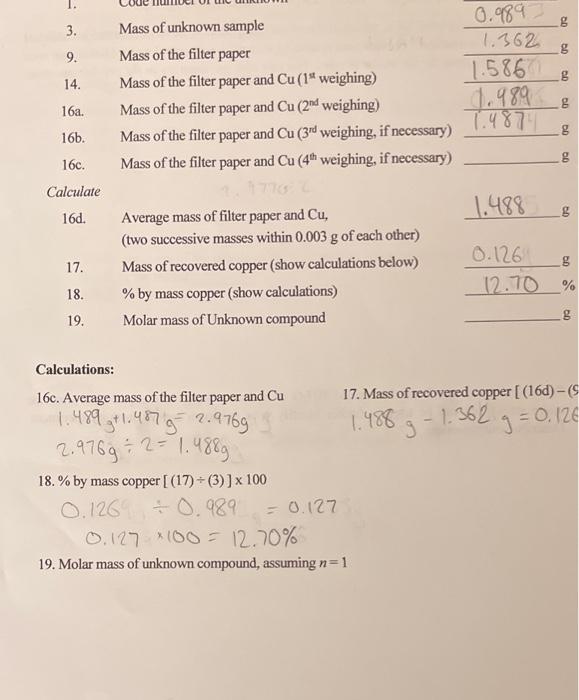 1. Code number of the unknown
3. Mass of unknown sample 0.989 g
9. Mass of the filter paper 1.362 g
14. Mass of the filter paper and Cu (1st weighing) 1.586 g
16a. Mass of the filter paper and Cu (2nd weighing) 1.489 g
16b. Mass of the filter paper and Cu (3rd weighing, if necessary) 1.487 g
16c. Mass of the filter paper and Cu (4th weighing, if necessary) g
Calculate
16d. Average mass of filter paper and Cu, 1.488 g
(two successive masses within 0.003 g of each other)
17. Mass of recovered copper (show calculations below) 0.126 g
18. % by mass copper (show calculations) 12.70 %
19. Molar mass of Unknown compound g
Calculations:
16c. Average mass of the filter paper and Cu
1.489g+1.487g=2.976g
2.976g÷2=1.488g
17. Mass of recovered copper [(16d)–(9
1.488g-1.362g=0.126
18. % by mass copper [(17)÷(3)] x 100
0.126÷0.989=0.127
0.127×100=12.70%
19. Molar mass of unknown compound, assuming n=1